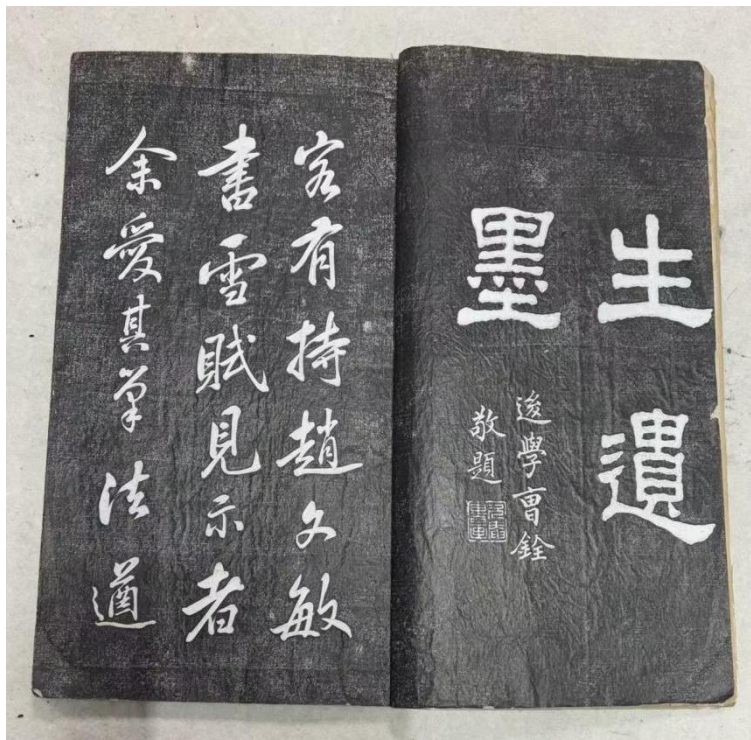 生遺
墨
逡學曹銓
敬題
客有持趙文敏
書雪賦見示者
余愛其筆法遒